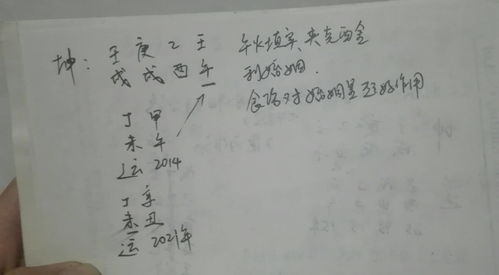 坤：壬庚乙壬
戌戌酉午
午火填实夹克酉金
利婚姻.
食治对婚姻是起好作用
丁甲
未午
运2014
丁辛
未丑
运2021年